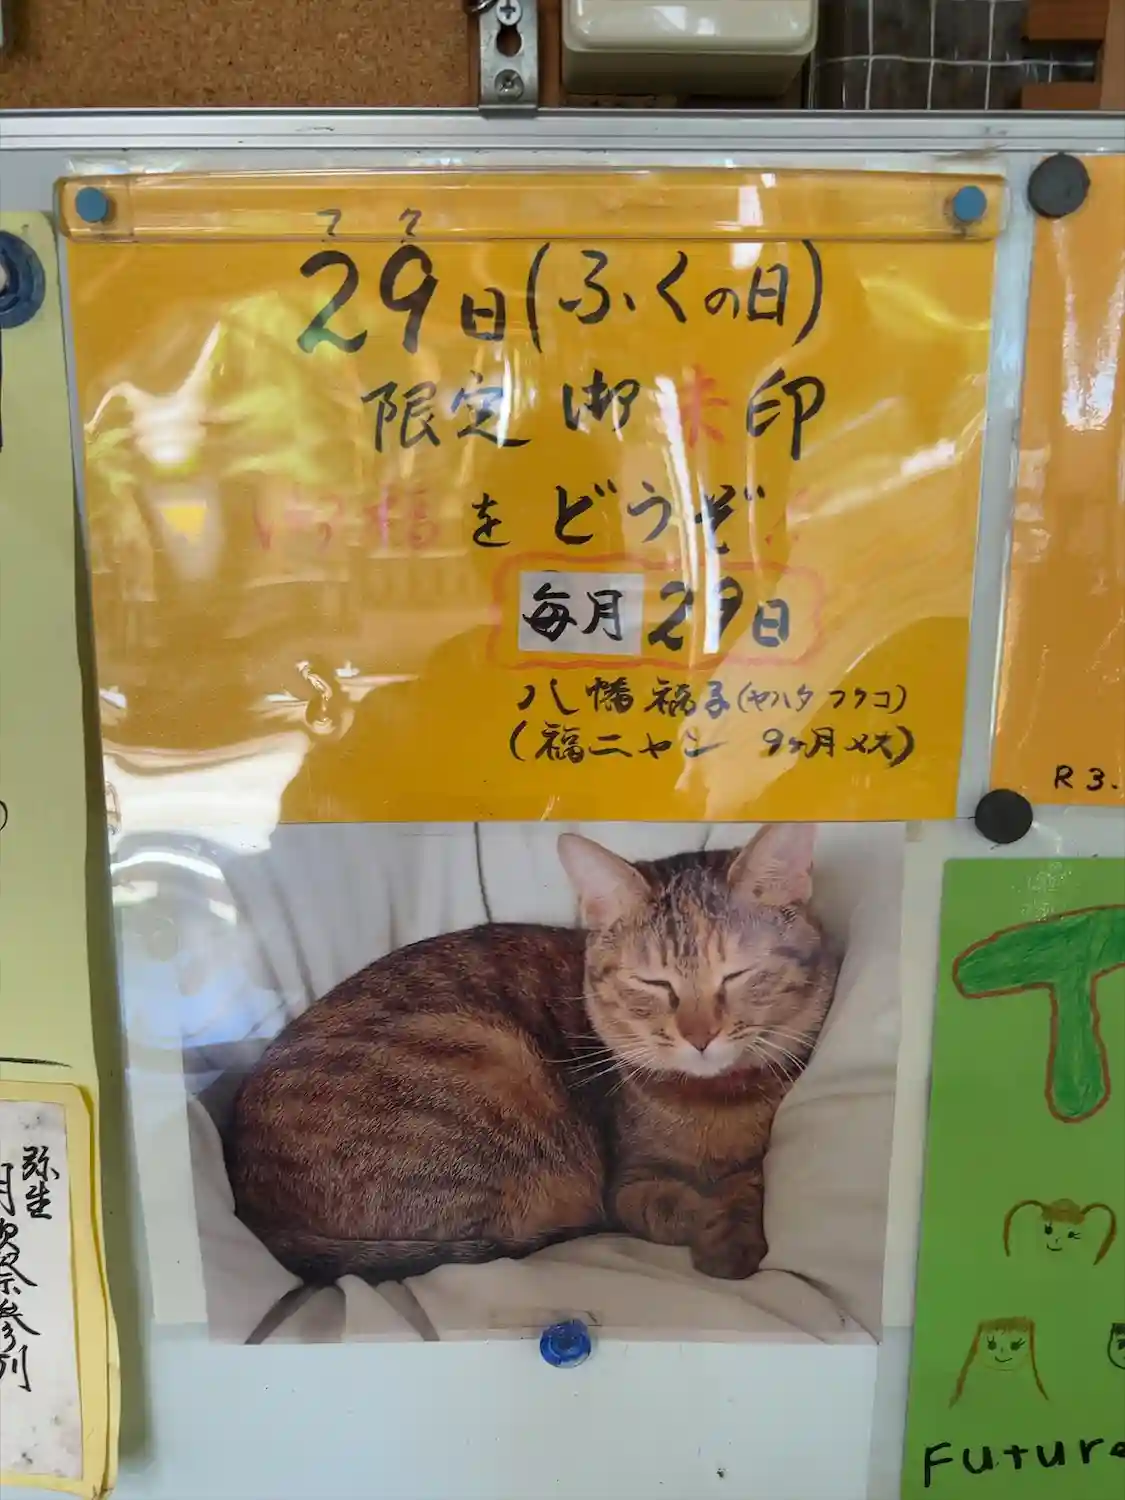 フ ク
29日(ふくの日)
限定 御朱印
御福 を どうぞ!!
毎月 29日
八幡 福子(ヤハタ フクコ)
(福ニャン 9ヶ月 メス)
R3.
Future
弥生
月次祭参列